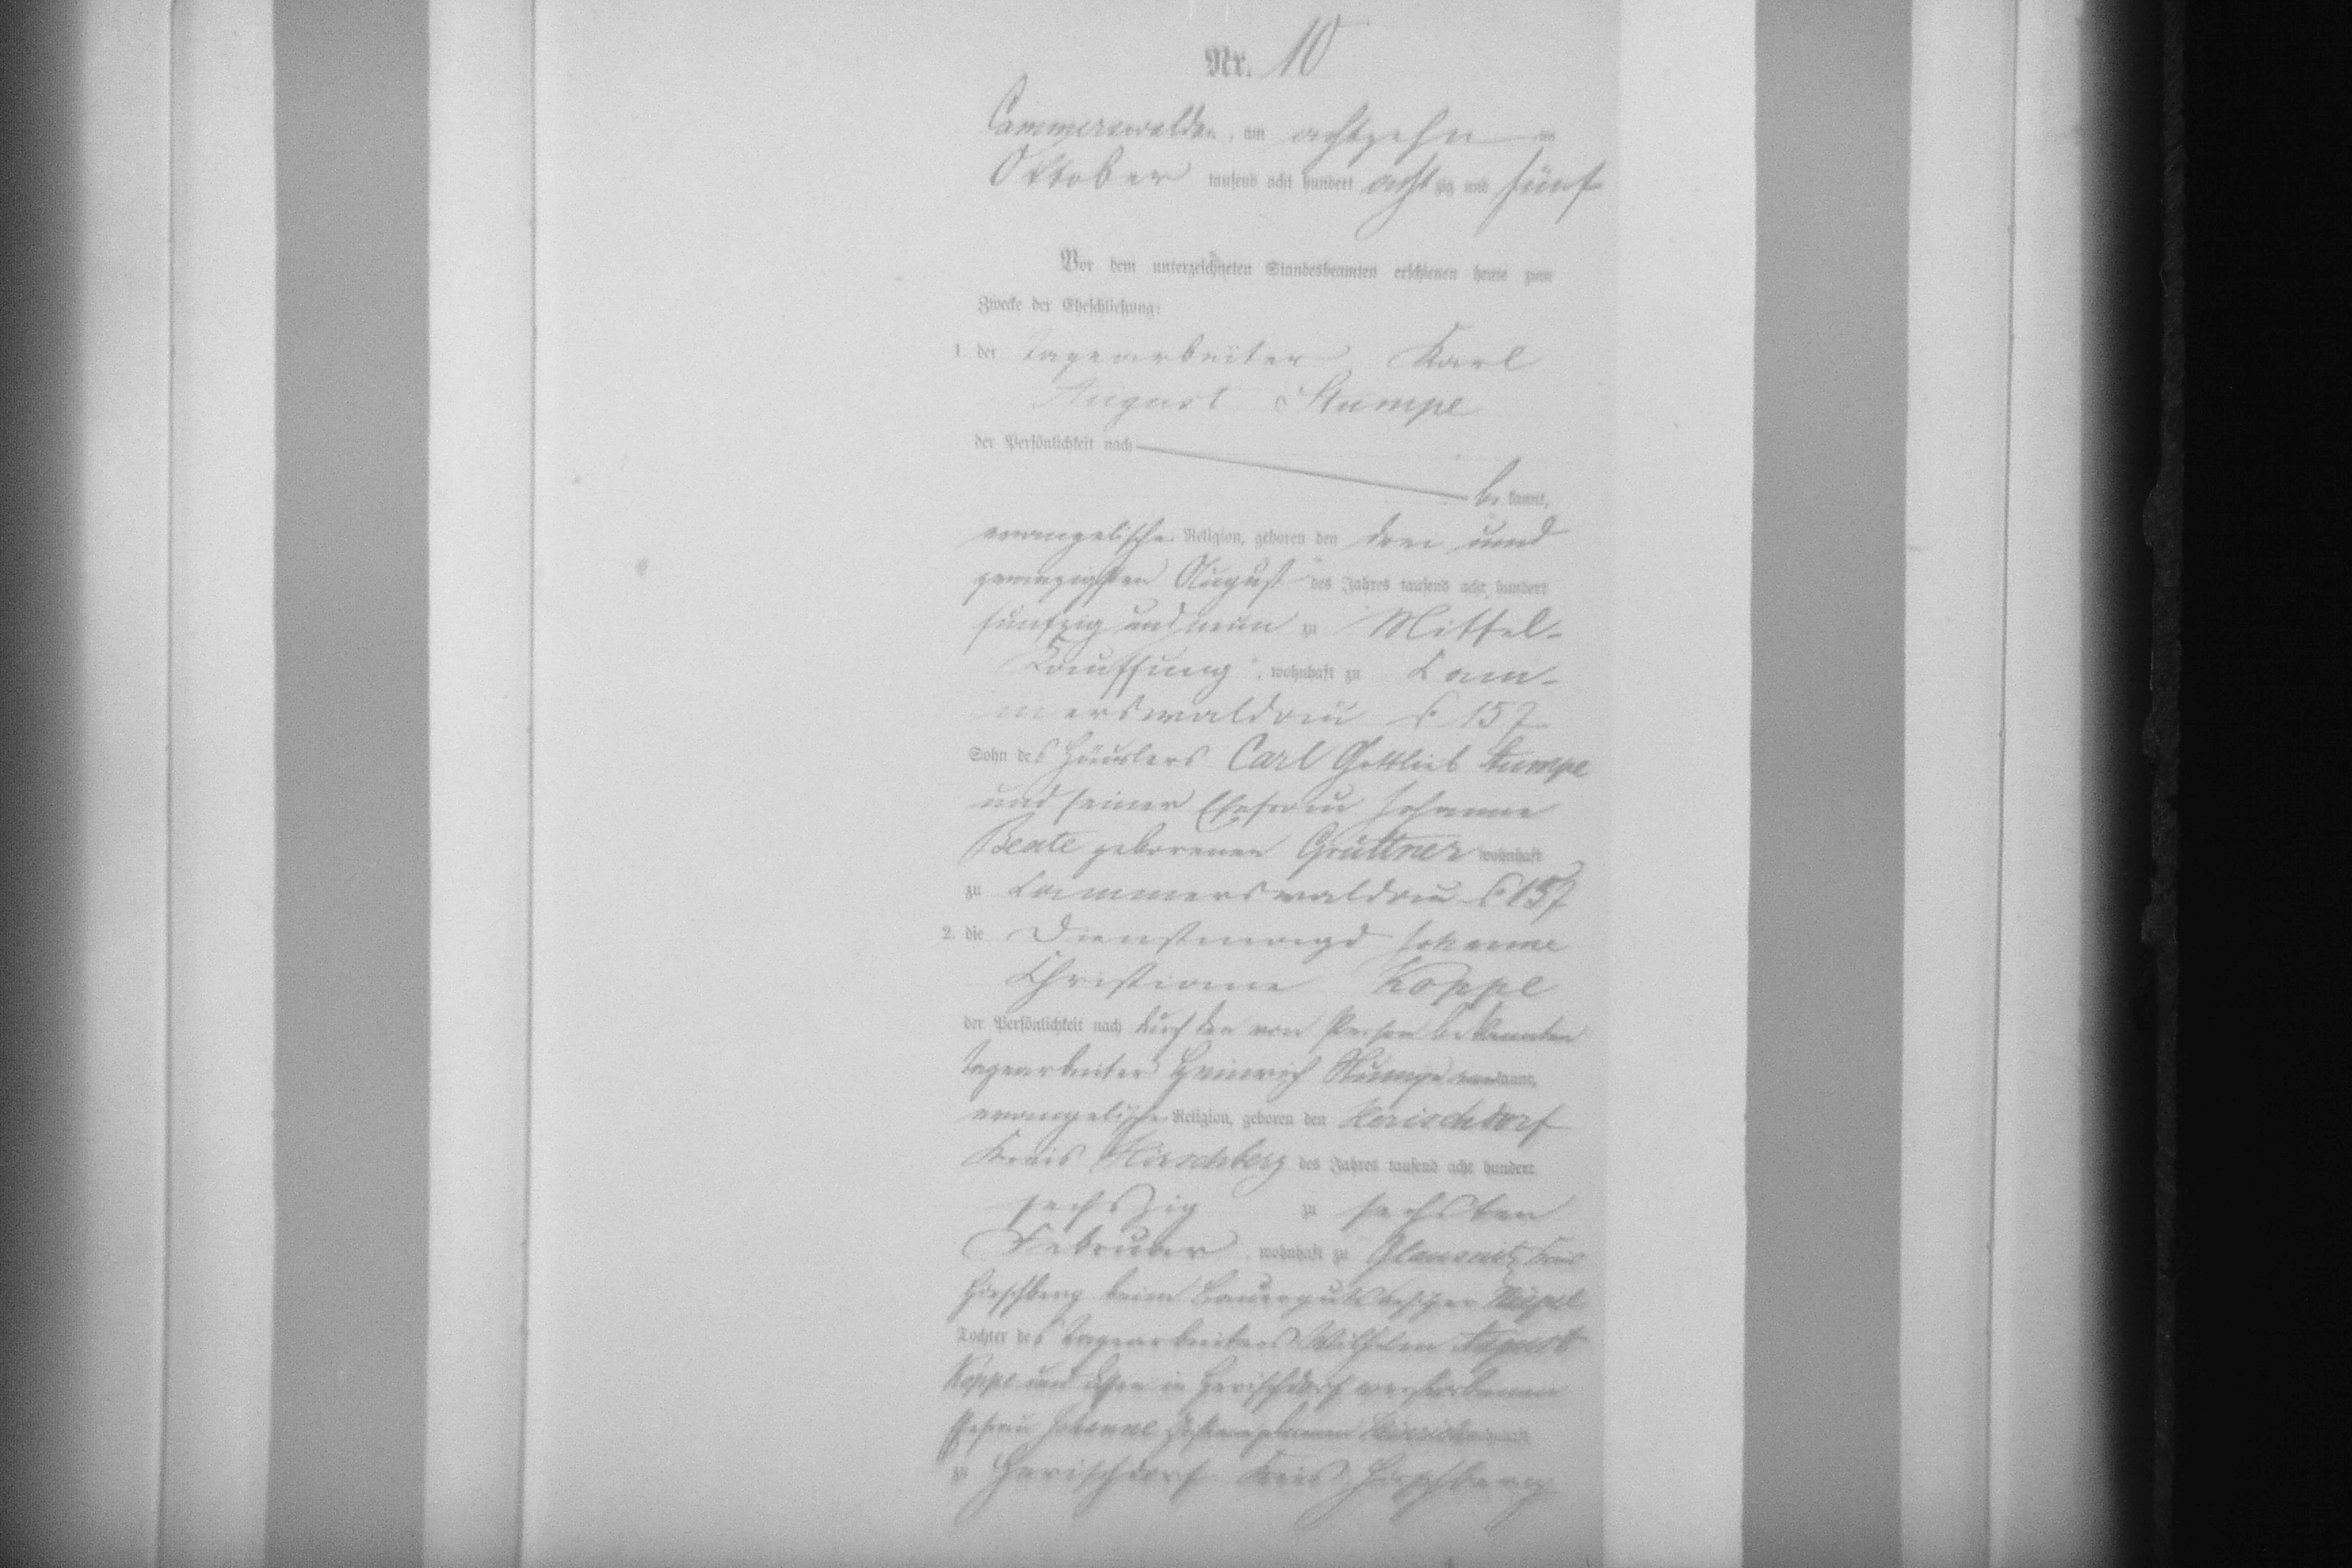 Nr. 10
Cammerswaldau, am achtzehn ten
Oktober tausend acht hundert achtzig und fünf
Vor dem unterzeichneten Standesbeamten erschienen heute zum
Zwecke der Eheschließung:
1. der Tagearbeiter Karl
August Stumpe
der Persönlichkeit nach
be kannt,
evangelischer Religion, geboren den drei und
zwanzigsten August des Jahres tausend acht hundert
funfzig und neun zu Mittel-
Kauffung, wohnhaft zu Cam-
merswaldau 157
Sohn des Häuslers Carl Gottlieb Stumpe
und seiner Ehefrau Johanne
Beate geborenen Grüttner wohnhaft
zu Cammerswaldau 157
2. die Dienstmagd Johanne
Christiane Koppe
der Persönlichkeit nach durch den von Person bekannten
Tagearbeiter Heinrich Stumpe kannt,
evangelischer Religion, geboren den Herischdorf
Kreis Hirschberg des Jahres tausend acht hundert
sechszig zu sechsten
Februar, wohnhaft zu Glausnitz Kreis
Hirschberg beim Bauergutsbesitzer
Tochter des Tagearbeiters Wilhelm August
Koppe und dessen in Herischdorf verstorbenen
Ehefrau Johanne geborenen wohnhaft
zu Herischdorf Kreis Hirschberg